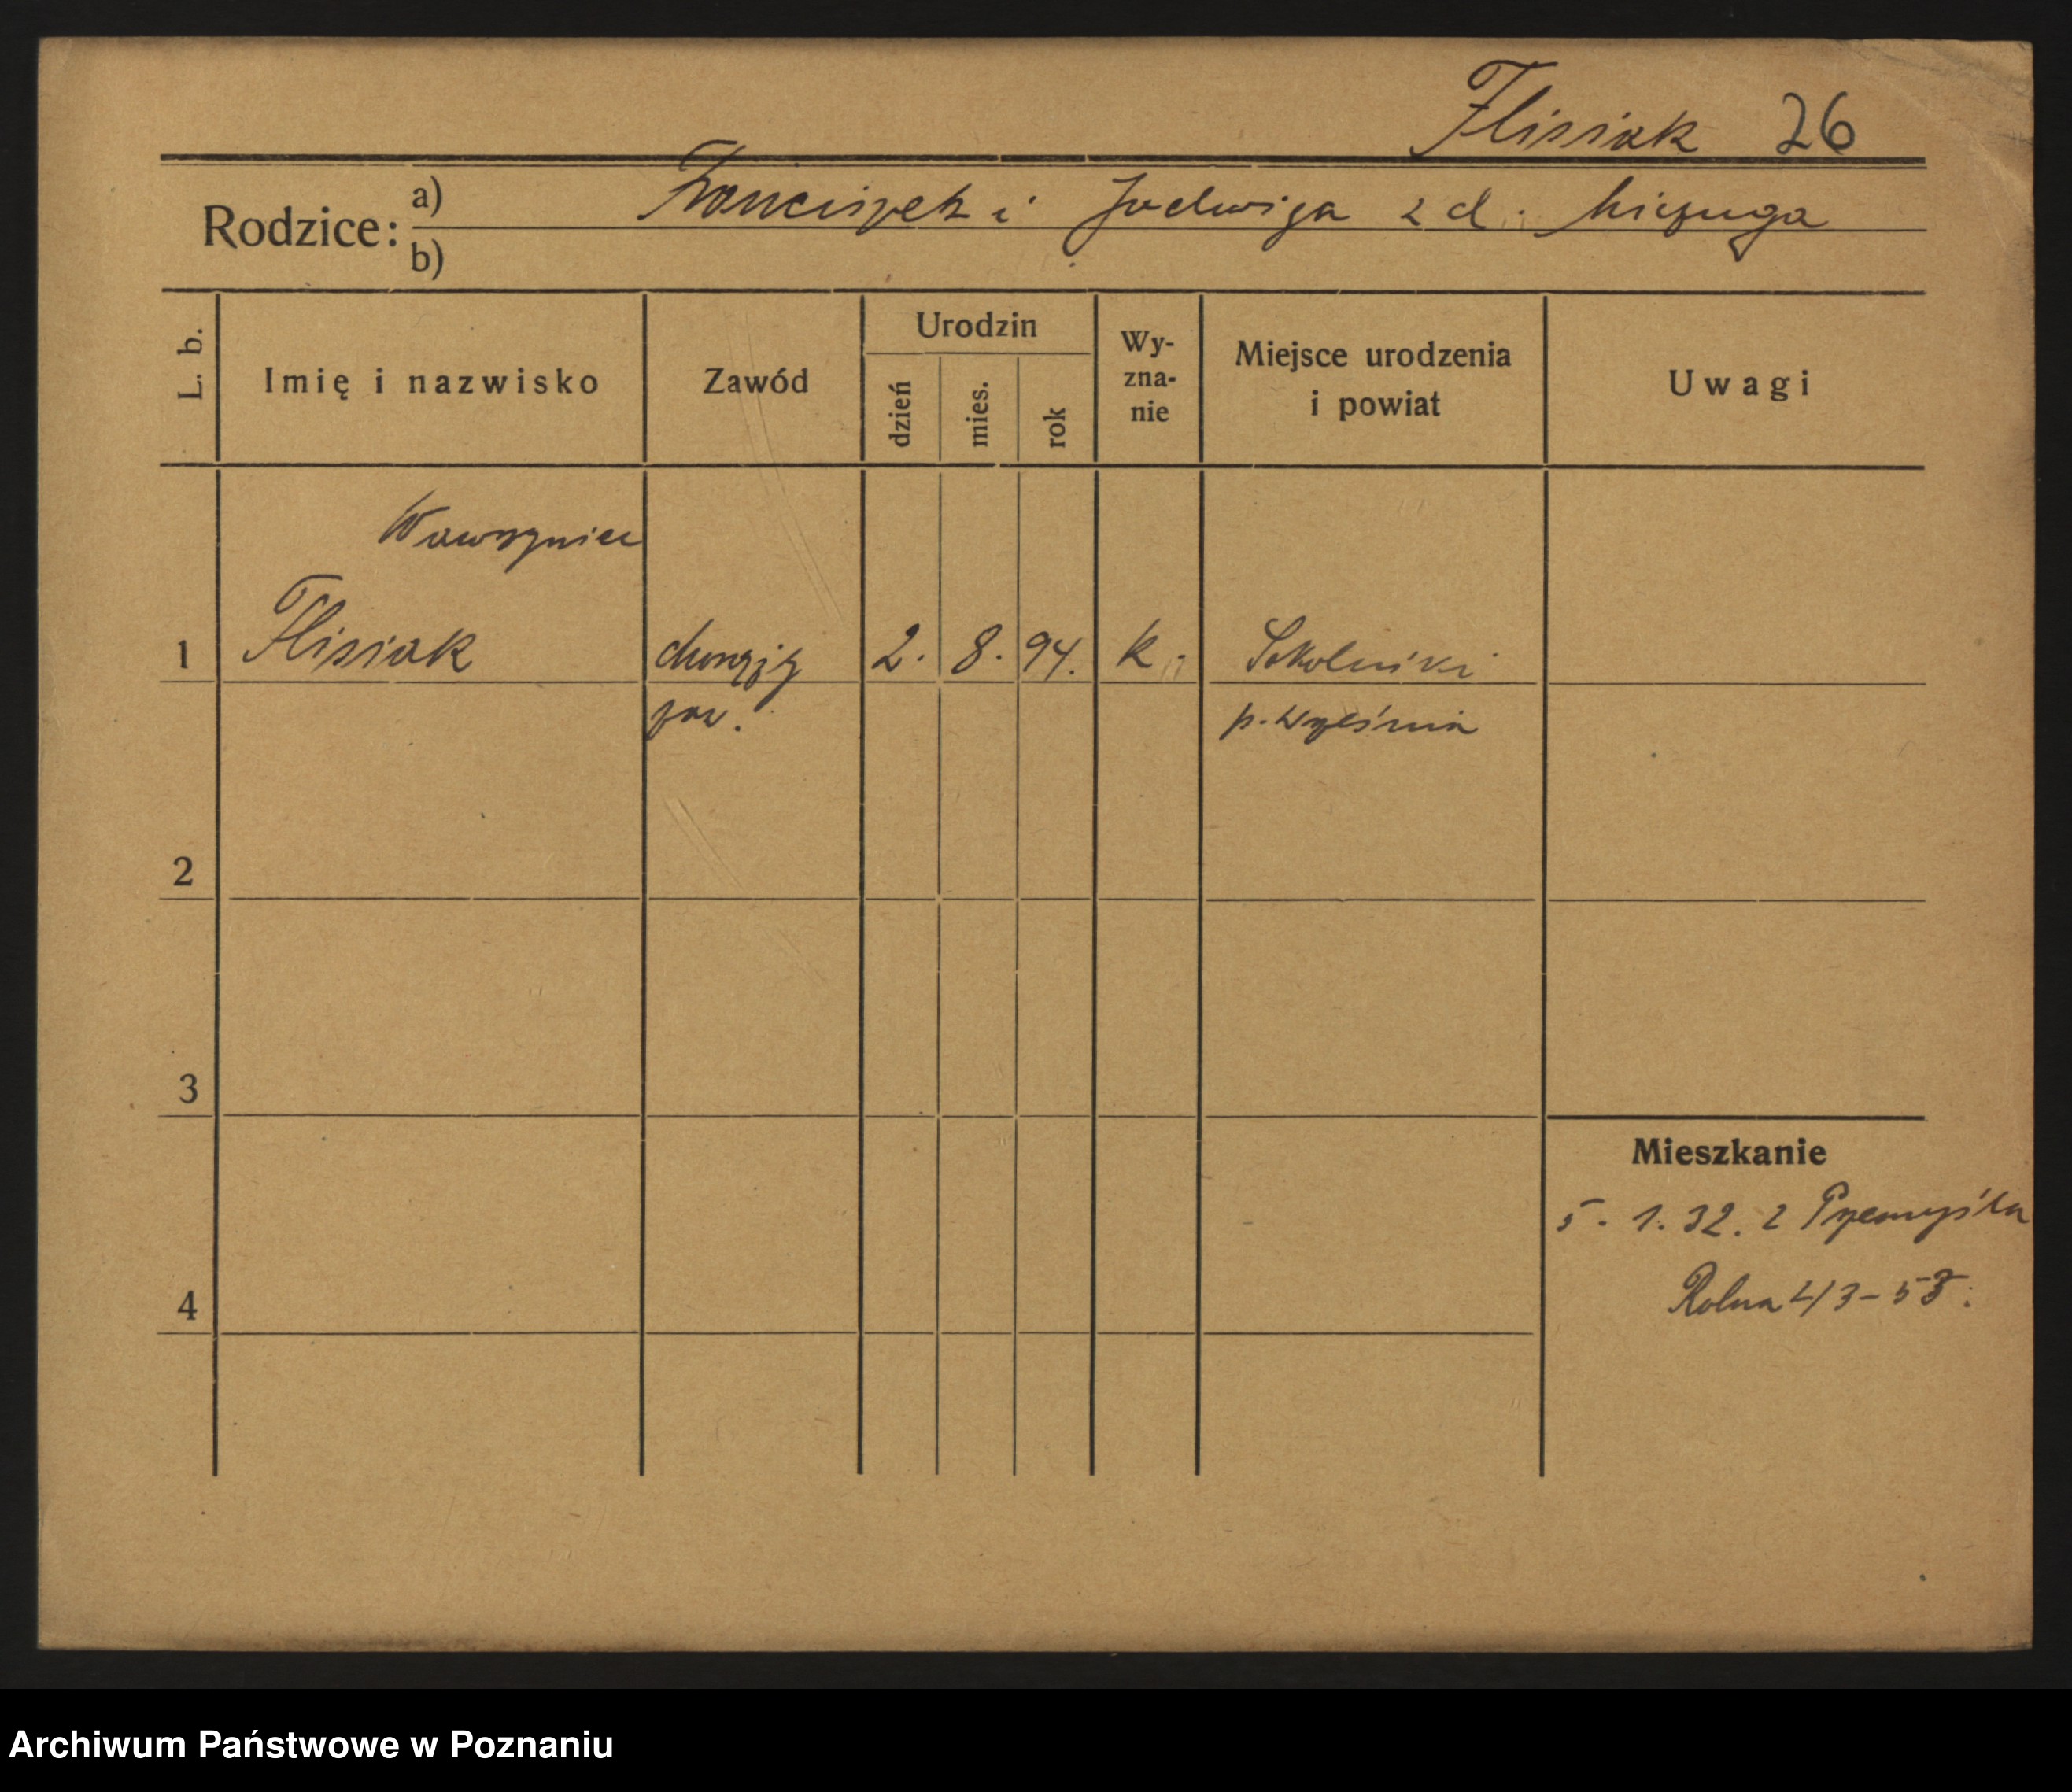 Flisiak 26
Rodzice:
a) Franciszek i Jadwiga z d.
b)
L. b.
Imię i nazwisko
Zawód
Urodzin
dzień
mies.
rok
Wy-
zna-
nie
Miejsce urodzenia
i powiat
Uwagi
Wawrzyniec
1 Flisiak chorąży 2. 8. 94. k. Sokolniki
zaw. p. Września
2
3
4
Mieszkanie
5. 1. 32. z Przemyśla
Rolna
Archiwum Państwowe w Poznaniu